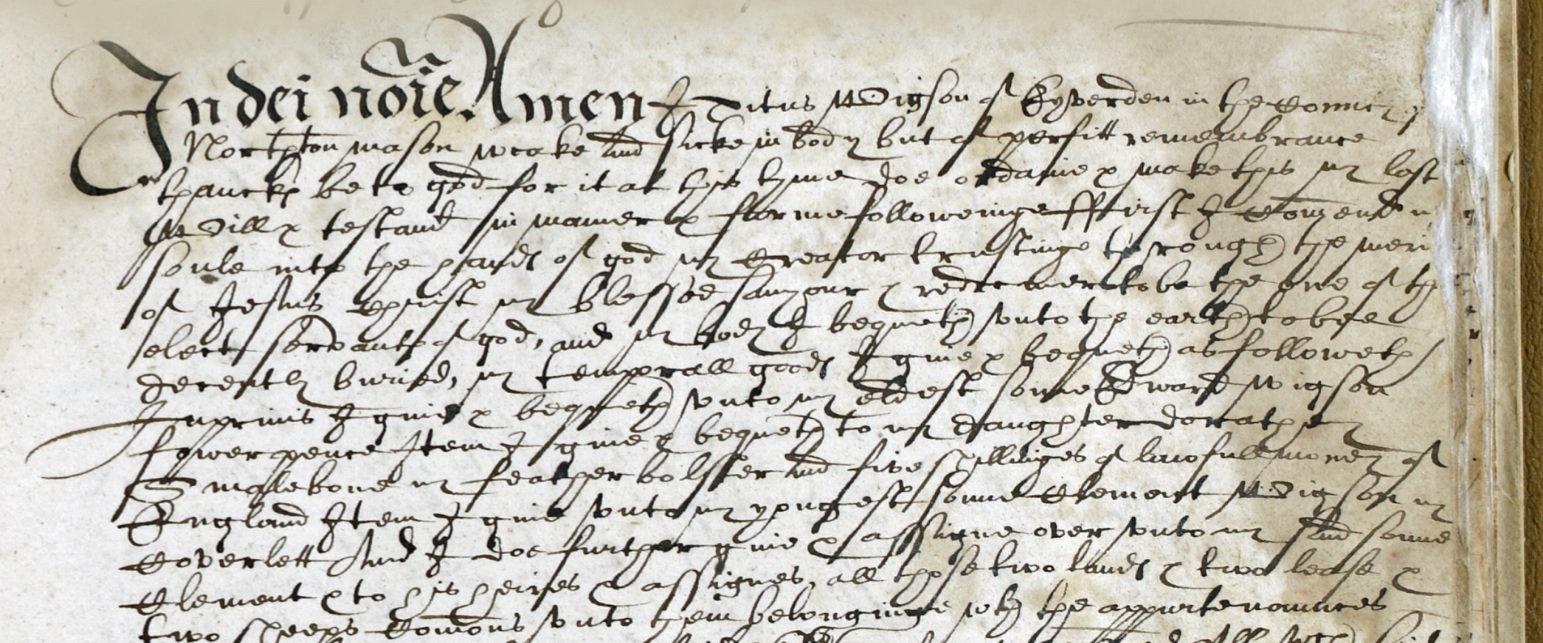 In dei noie Amen I Titus Wigson of in the Countie of
Northton mason weake and sicke in body but of perfitt remembrance
thancks be to god for it at this tyme doe ordaine & make this my last
Will & testamt in manner & forme followeinge ffirst I Comend m
soule into the hands of god my Creator trustinge through the meri
of Jesus Christ my blessed saviour & redeemer to be the one of the
elect servants of god, and my body I bequeth unto the earth to bee
decently buried, my temporall goods I give & bequeth as followeth
Inprimis I give & bequeth unto my eldest sonne Edward Wigson
fower pence Item I give & bequeth to my daughter
my feather bolster and five shillinges of lawfull money of
England Item I give unto my yongest sonne Clement Wigson my
Coverlett And I doe further give & assigne over unto my said sonne
Clement & to his heires & assignes, all those two lands & two lease &
two sheeps Comons unto them belonginge wth the appurtenaunces